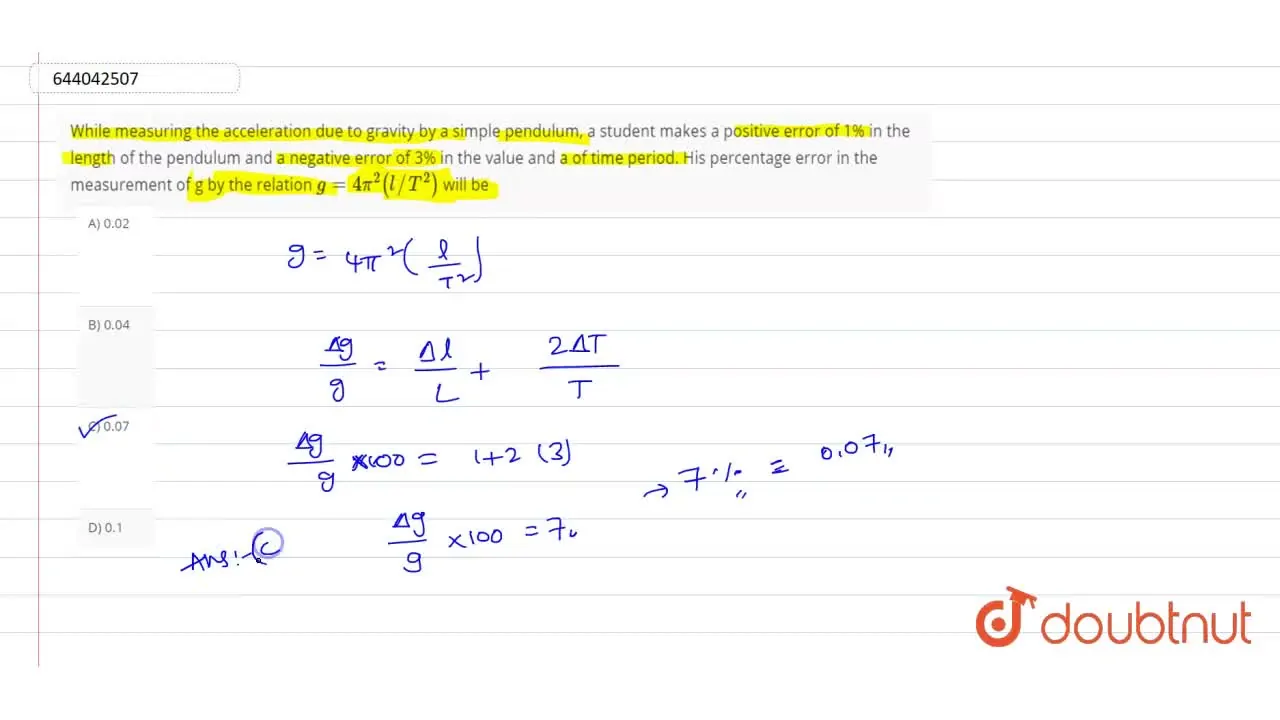 644042507
While measuring the acceleration due to gravity by a simple pendulum, a student makes a positive error of 1% in the
length of the pendulum and a negative error of 3% in the value and a of time period. His percentage error in the
measurement of g by the relation g = 4π²(l/T²) will be
A) 0.02
g = 4π²(l/T²)
B) 0.04
Δg/g = Δl/L + 2ΔT/T
C) 0.07
Δg/g ×100 = 1+2 (3)
→ 7% = 0.07,,
D) 0.1
Δg/g ×100 = 7,,
Ans:-(C
doubtnut